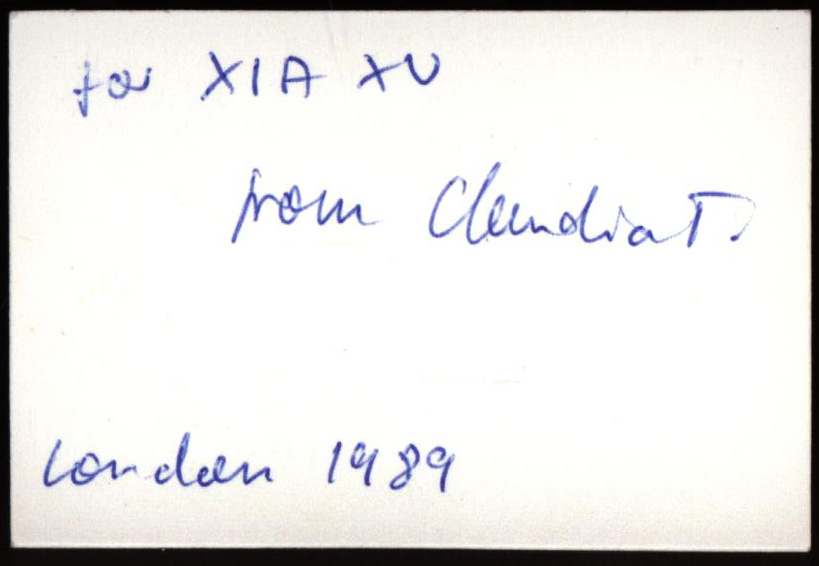 for XIA XU
from Claudia T.
London 1989